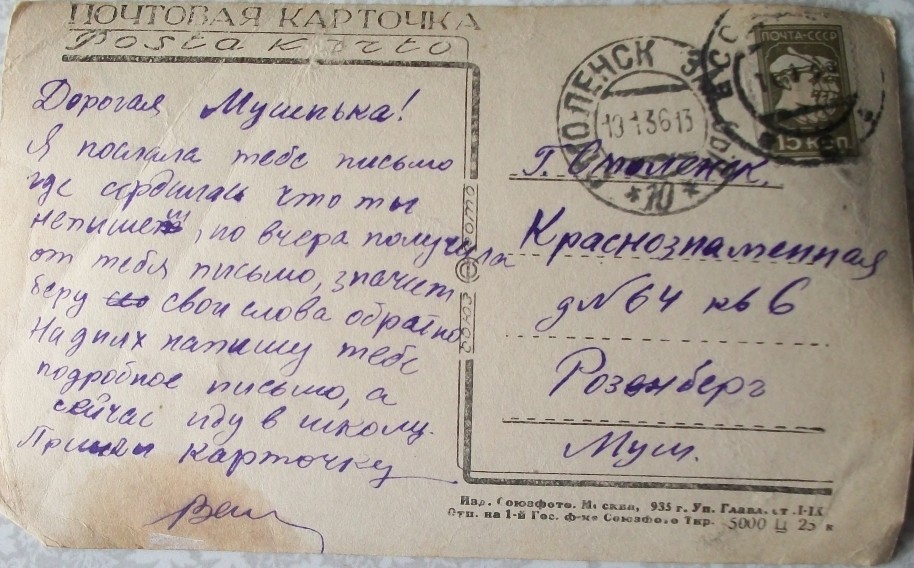 ПОЧТОВАЯ КАРТОЧКА
Posta karto
Дорогая Мушенька!
Я послала тебе письмо
где сердилась что ты
непишешь, но вчера получила
от тебя письмо, значет
беру свои слова обратно
На днях напишу тебе
подробное письмо, а
сейчас иду в школу.
Пришли карточку
СОЮЗ ФОТО
ПОЧТА-СССР
15 КОП
СМОЛЕНСК
19 1 36 13
*10*
Г. Смоленск.
Краснознаменная
д№64 кв 6
Розенберг
Муш.
Изд. Союзфото. Москва, 935 г. Уп. Главл.
Отп. на 1-й Гос. ф-ке Союзфото Тир. 5000 Ц 25 к